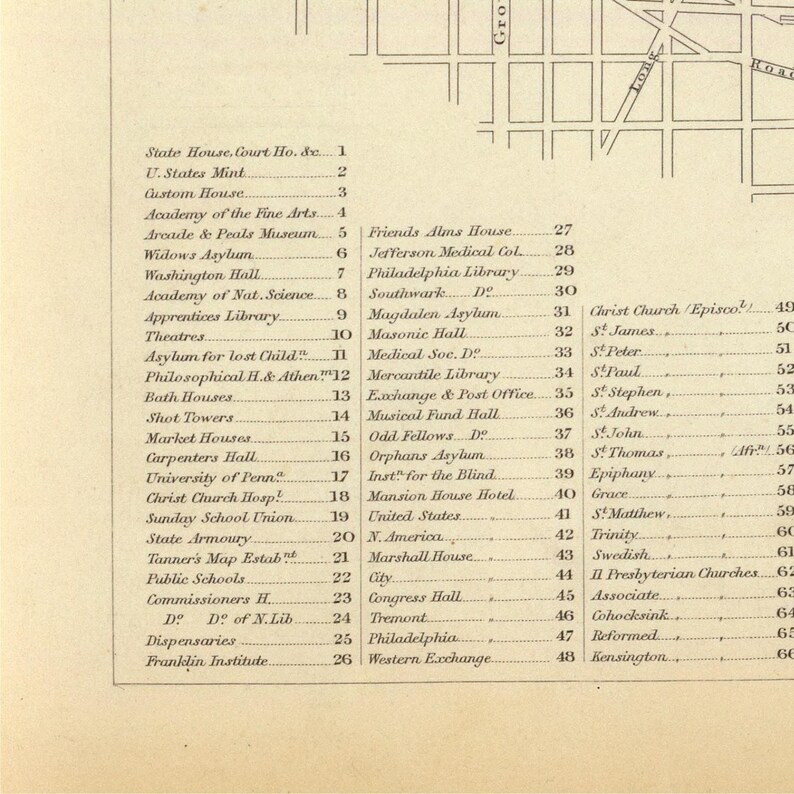 Gro
Long
Road
State House, Court Ho. &c.... 1
U. States Mint 2
Custom House 3
Academy of the Fine Arts 4
Arcade & Peals Museum 5
Widows Asylum 6
Washington Hall 7
Academy of Nat. Science 8
Apprentices Library 9
Theatres 10
Asylum for lost Child.n 11
Philosophical H. & Athen.m 12
Bath Houses 13
Shot Towers 14
Market Houses 15
Carpenters Hall 16
University of Penn.a 17
Christ Church Hosp.l 18
Sunday School Union 19
State Armoury 20
Tanner's Map Estab.nt 21
Public Schools 22
Commissioners H. 23
D.o D.o of N. Lib 24
Dispensaries 25
Franklin Institute 26
Friends Alms House 27
Jefferson Medical Col. 28
Philadelphia Library 29
Southwark D.o 30
Magdalen Asylum 31
Masonic Hall 32
Medical Soc. D.o 33
Mercantile Library 34
Exchange & Post Office 35
Musical Fund Hall 36
Odd Fellows D.o 37
Orphans Asylum 38
Inst.n for the Blind 39
Mansion House Hotel 40
United States „ 41
N. America „ 42
Marshall House „ 43
City „ 44
Congress Hall „ 45
Tremont „ 46
Philadelphia „ 47
Western Exchange 48
Christ Church (Episco.l) 49
S.t James „ „ 50
S.t Peter „ „ 51
S.t Paul „ „ 52
S.t Stephen „ „ 53
S.t Andrew „ „ 54
S.t John „ „ 55
S.t Thomas „ (Afr.n) 56
Epiphany „ „ 57
Grace „ „ 58
S.t Matthew „ „ 59
Trinity „ „ 60
Swedish „ „ 61
11 Presbyterian Churches 62
Associate „ „ 63
Cohocksink „ „ 64
Reformed „ „ 65
Kensington „ „ 66